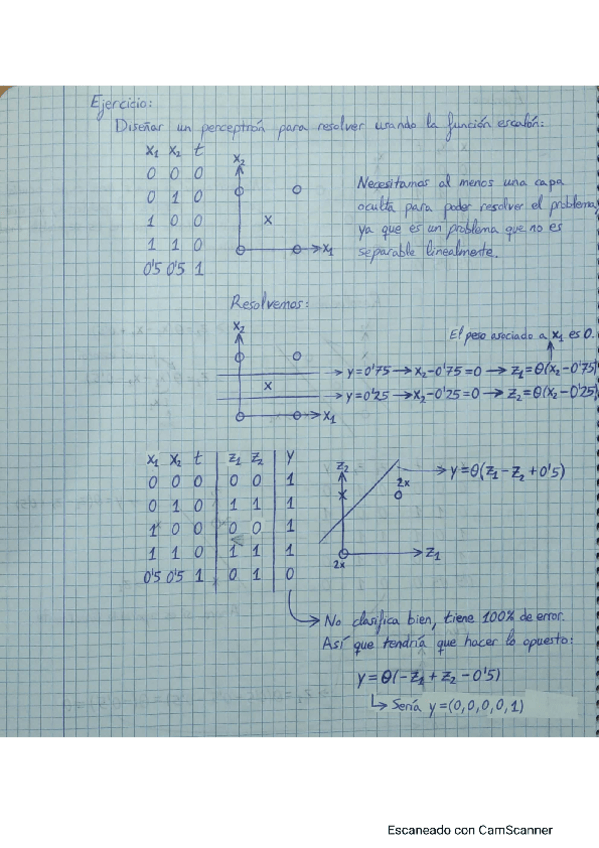 Ejercicio:
Diseñar un perceptrón para resolver usando la función escalón:
x₁ x₂ t
0 0 0
0 1 0
1 0 0
1 1 0
0'5 0'5 1
x₂
x
x₁
Necesitamos al menos una capa
oculta para poder resolver el problema,
ya que es un problema que no es
separable linealmente.
Resolvemos:
x₂
x
x₁
El peso asociado a x₁ es 0.
→ y=0'75 → x₂-0'75=0 → z₁=θ(x₂-0'75)
→ y=0'25 → x₂-0'25=0 → z₂=θ(x₂-0'25)
x₁ x₂ t z₁ z₂ y
0 0 0 0 0 1
0 1 0 1 1 1
1 0 0 0 0 1
1 1 0 1 1 1
0'5 0'5 1 0 1 0
z₂
x
2x
2x
z₁
→ y=θ(z₁-z₂+0'5)
→ No clasifica bien, tiene 100% de error.
Así que tendría que hacer lo opuesto:
y=θ(-z₁+z₂-0'5)
↳ Sería y=(0,0,0,0,1)
Escaneado con CamScanner